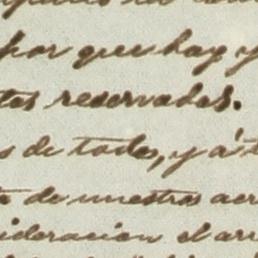 por que hay y
tes reservadas.
s de todos, y á t
de nuestros acr
ideracion el arr